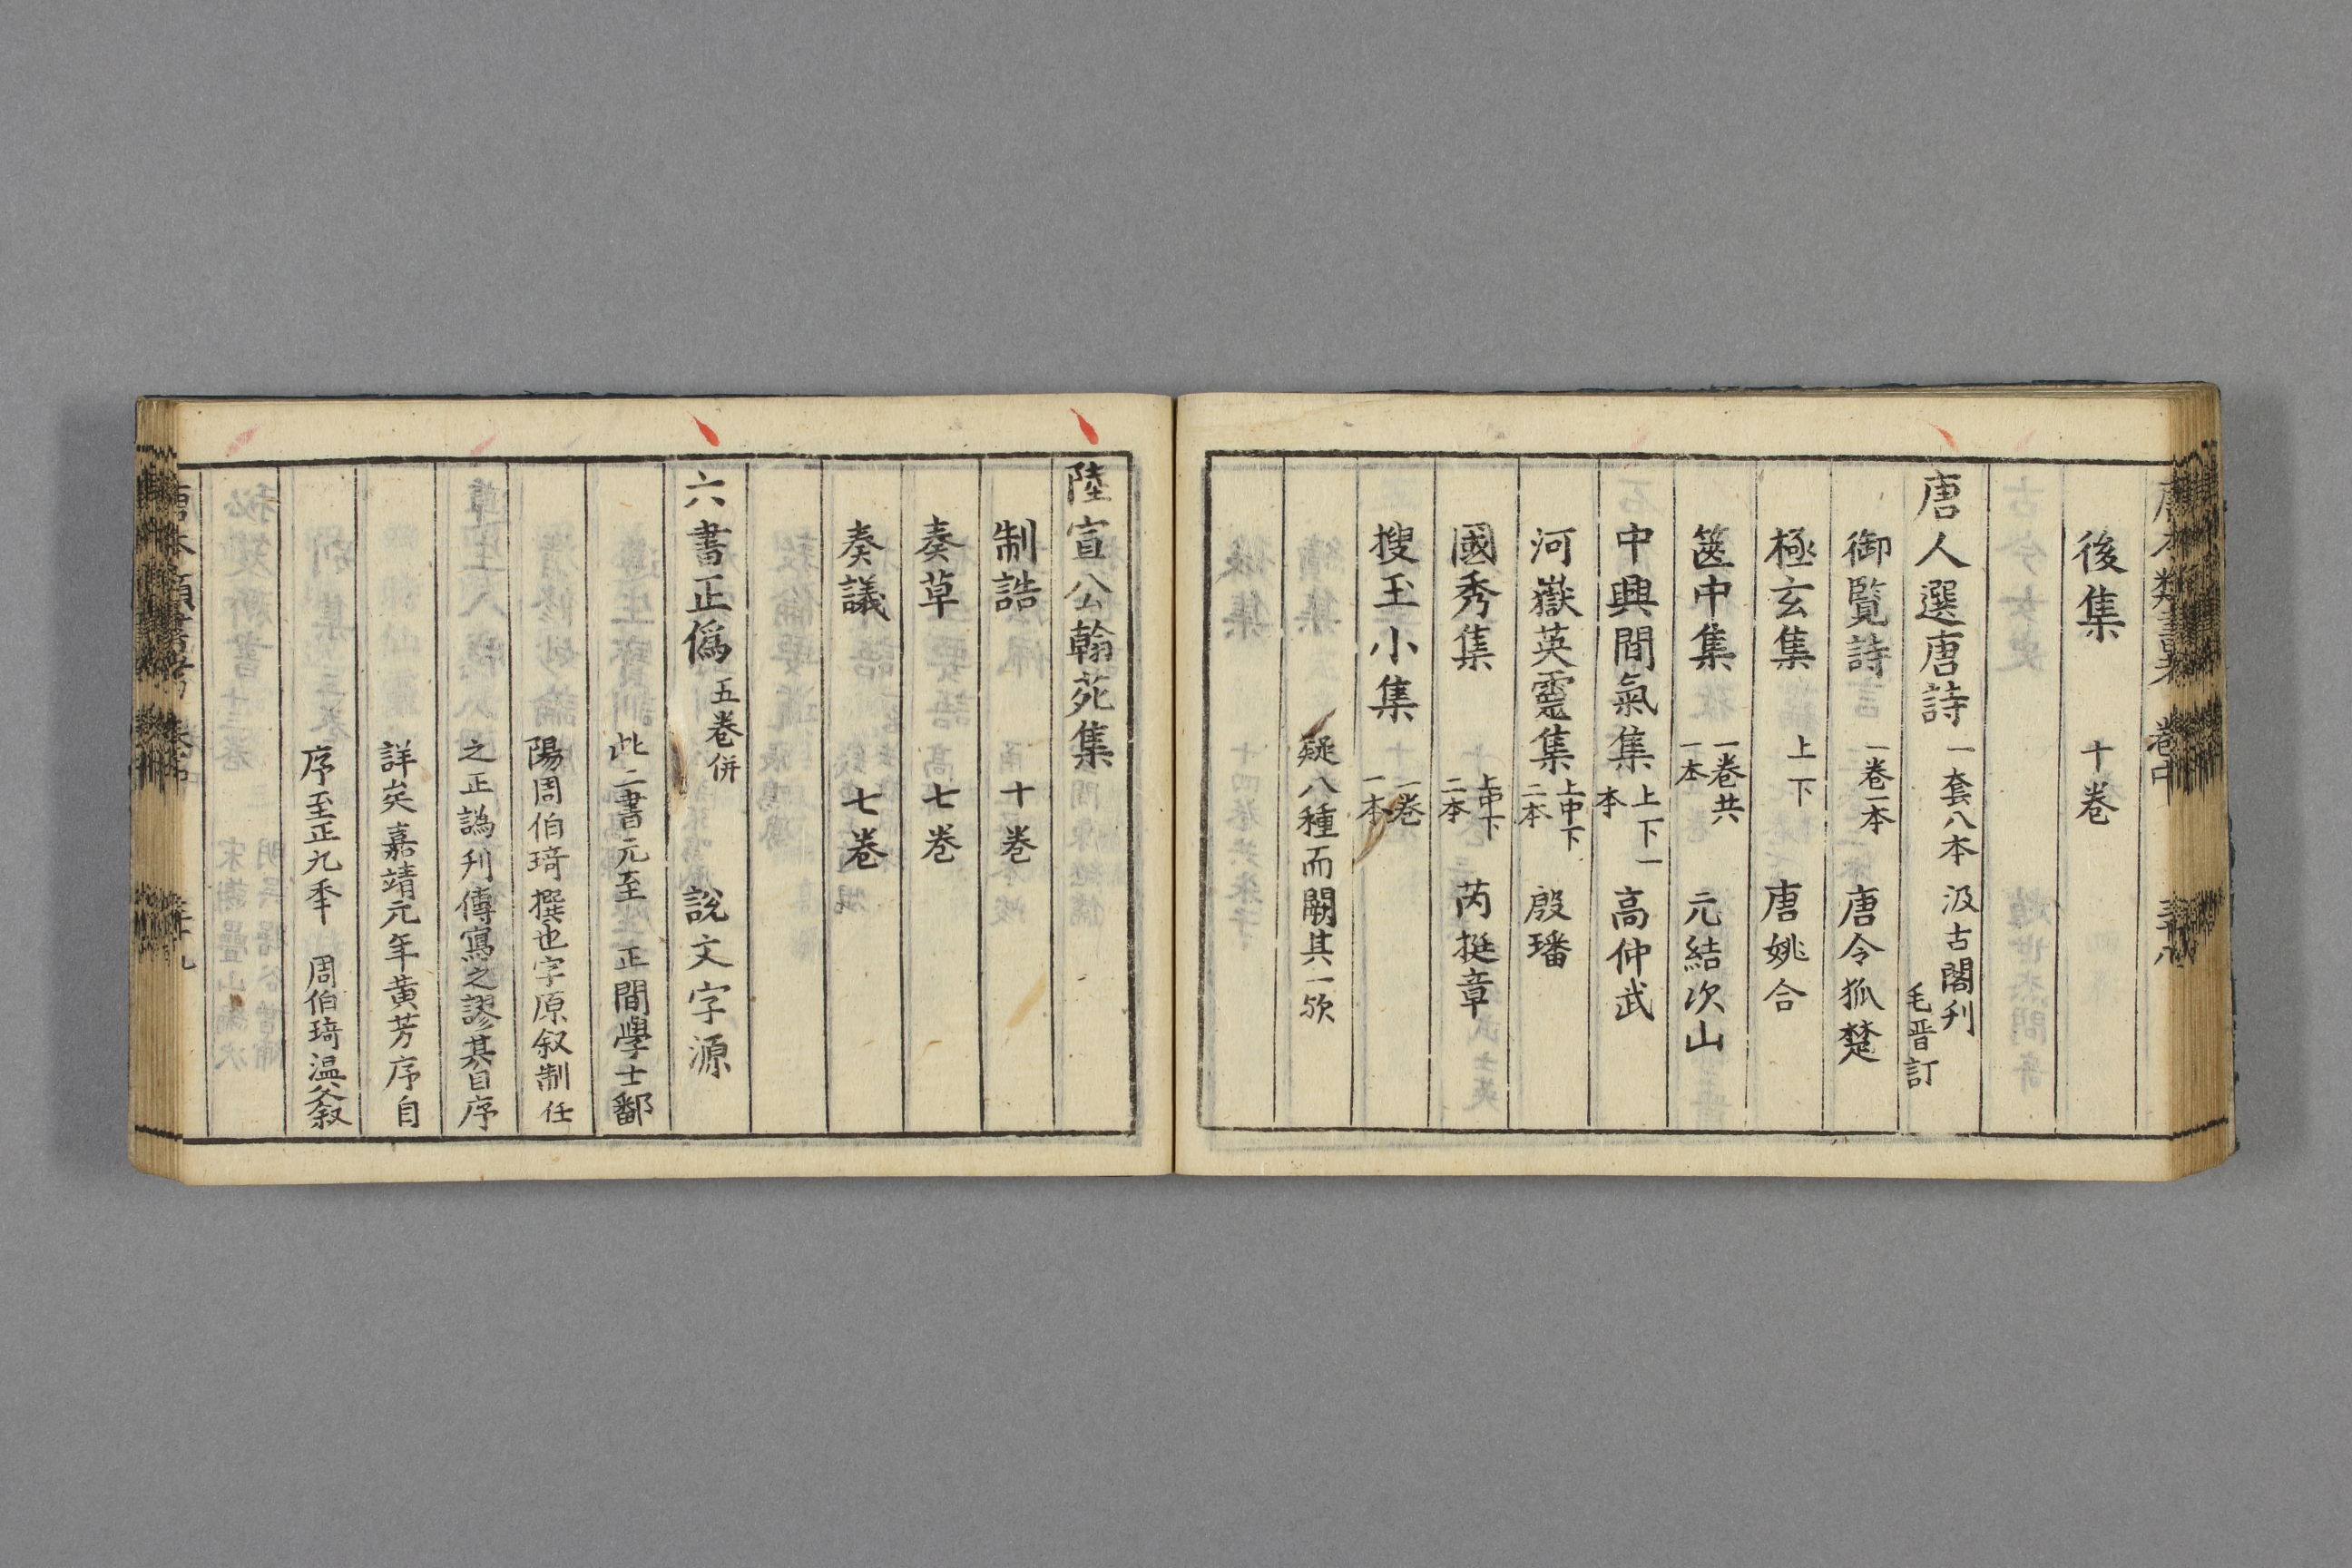 唐本類書考 卷中 三十八
後集 十卷
唐人選唐詩 一套八本 汲古閣刊 毛晋訂
御覧詩 一卷一本 唐令狐楚
極玄集 上下 唐姚合
篋中集 一卷共一本 元結次山
中興間氣集 上下一本 高仲武
河嶽英靈集 上中下二本 殷璠
國秀集 上中下二本 芮挺章
搜玉小集 一卷一本
疑八種而闕其一欤
陸宣公翰苑集
制誥 十卷
奏草 七卷
奏議 七卷
六書正僞 五卷併 說文字源
此二書元至正間學士鄱
陽周伯琦撰也字原叙制任
之正譌刋傳寫之謬其自序
詳矣嘉靖元年黄芳序自
序至正九秊 周伯琦温父叙
唐本類書考 卷中